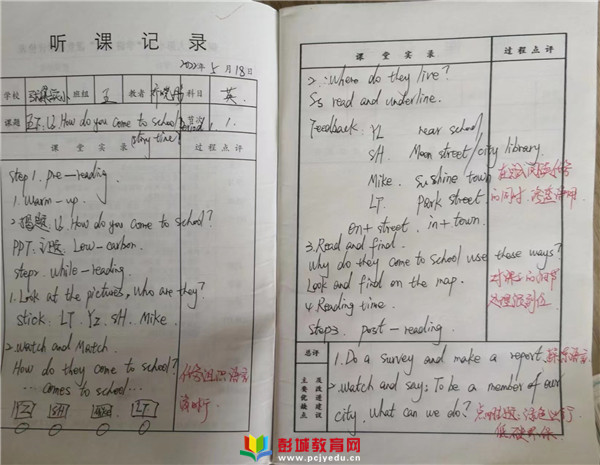 听课记录
2022年5月18日
学校 班组 五 教者 科目 英
课题 五下 U2 How do you come to school? 1.
(story time)
课堂实录 过程点评
step 1. pre-reading
1. Warm-up.
2. 揭题. U2. How do you come to school?
PPT. 主题. Low-carbon.
step2. while-reading.
1. Look at the pictures, who are they?
stick. LT. YL. SH. Mike.
2. Watch and Match.
How do they come to school?
... comes to school...
YL SH LT
课堂实录 过程点评
2. Where do they live?
Ss read and underline.
Feedback. YL near school
SH. Moon street/city library
Mike. Sunshine town
LT. Park street.
on + street. in + town.
的同时
3. Read and find.
Why do they come to school use these ways?
Look and find on the map.
4. Reading time.
step3. post-reading.
总评
主要优缺点及改进建议
1. Do a survey and make a report.
2. Watch and say: To be a member of our
city. What can we do?
低碳环保
彭城教育网
www.pcjyedu.cn